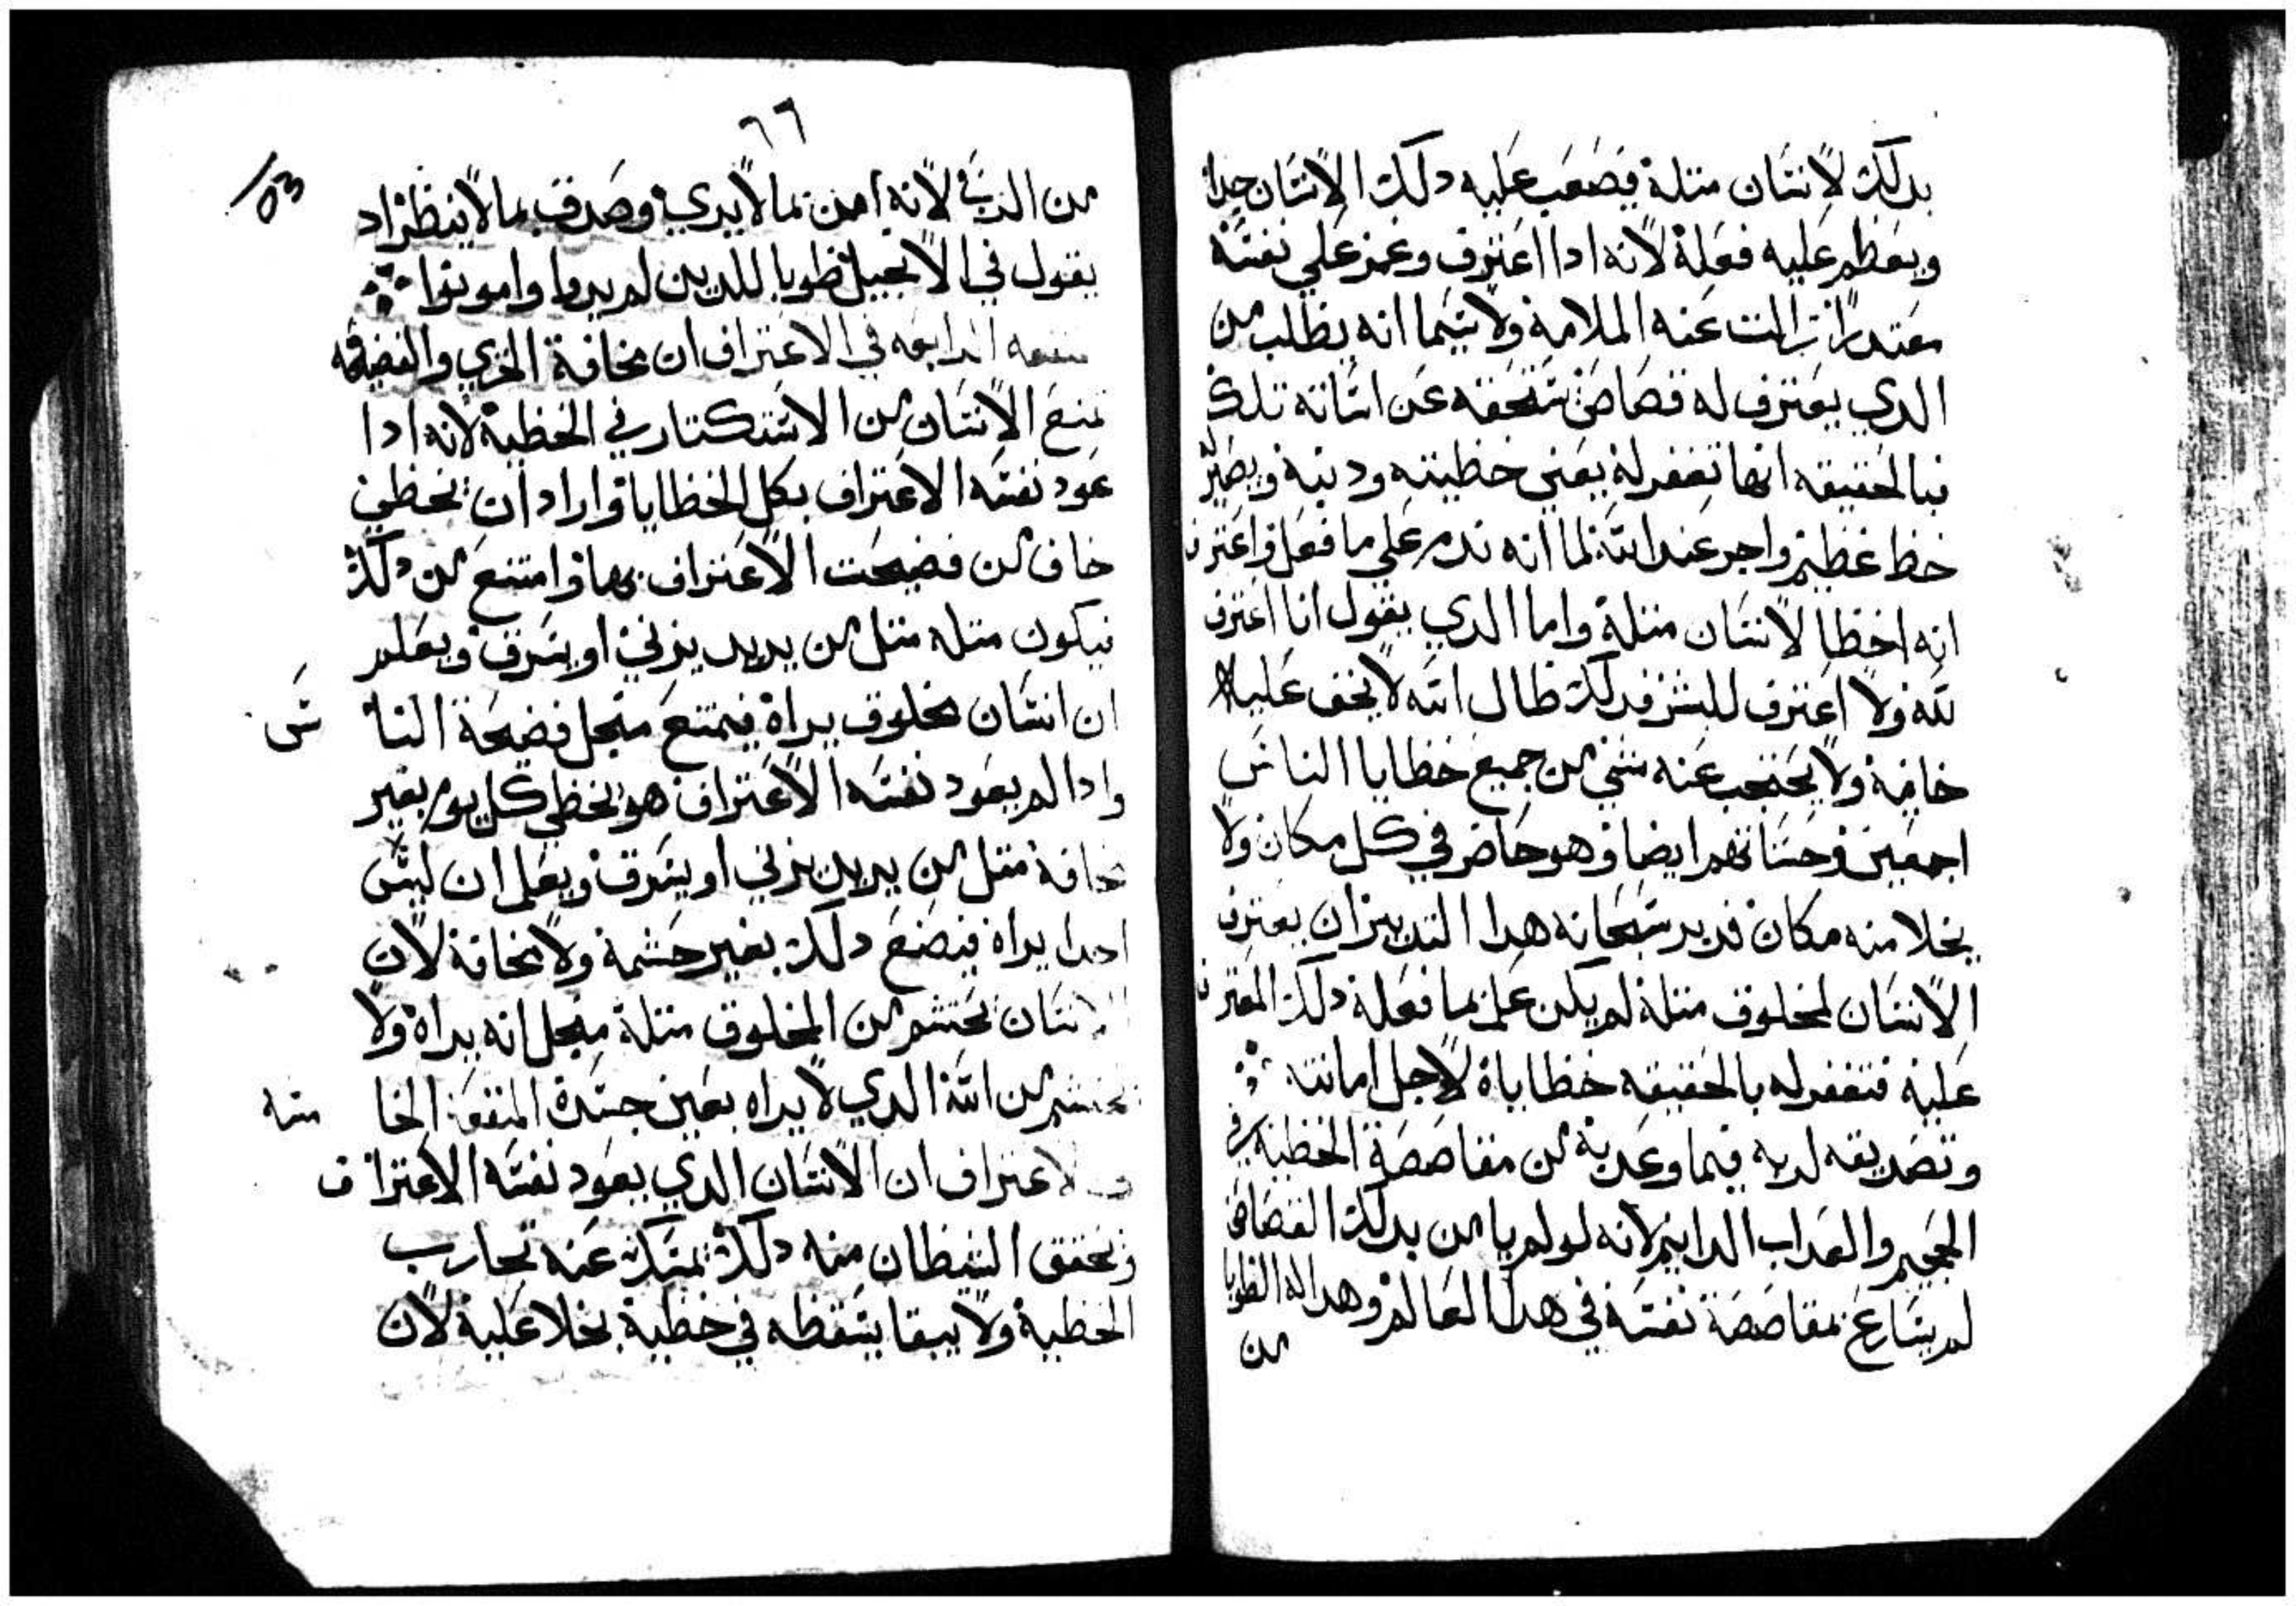 بدلك لانسان متله فصعب عليه دلك الانسان جدا
ويعظم عليه فعله لانه ادا اعترف وغمز علي نفسه
معتدرا زالت عنه الملامه ولا سيما انه يطلب من
الدي يعترف له قصاص تستحقه عن اساته تلك
فبالحقيقه انها تغفر له يعني خطيته ودنبه ويصير
حظ عظيم واجر عند الله لما انه ندم علي ما فعل واعترف
انه اخطا لانسان متله واما الدي يقول انا اعترف
لله ولا اعترف للبشر فدلك ظال الله لا يخف عليه
خافية ولا يحتجب عنه شي من جميع خطايا الناس
اجمعين وحسناتهم ايضا وهو حاضر في كل مكان ولا
يخلا منه مكان فدبر سبحانه هدا التدبير ان يعترف
الانسان لمخلوق متله لم يكن علم بما فعله دلك المعترف
عليه فتغفر له بالحقيقه خطاياه لاجل امانته
وتصديقه لربه فيما وعد به من مقاصصة الخطية في
الجحيم والعداب الدايم لانه لو لم يامن بدلك القصاص
لم يسارع بمقاصصة نفسه في هدا العالم وهدا له الطوبا
من
٦٦
من الرب لانه امن بما لا يري وصدق بما لا ينظر اد
يقول في الانجيل طوبا للدين لم يروا وامونوا
الرابعه في الاعتراف ان مخافة الخزي والفضيحه
تمنع الانسان من الاستكتار في الخطية لانه ادا
عود نفسه الاعتراف بكل الخطايا واراد ان يخطي
خاف من فضيحت الاعتراف بها وامتنع من دلك
فيكون متله متل من يريد يزني او يسرق ويعلم
ان انسان مخلوق يراه فيمتنع منجل فضيحة النا س
وادا لم يعود نفسه الاعتراف هو يخطي كل يوم بغير
مخافة متل من يريد يزني او يسرق ويعلم ان ليس
احدا يراه فيصنع دلك بغير حشمة ولا مخافة لان
الانسان يحتشم من المخلوق متله منجل انه يراه ولا
يحتشم من الله الدي لا يراه بعين جسده المنفعة الخا مسه
في الاعتراف ان الانسان الدي يعود نفسه الاعتراف
وتحقق الشيطان منه دلك يمسك عنه تجارب
الخطية ولا يبقا يسقطه في خطية بخلا عليه لان